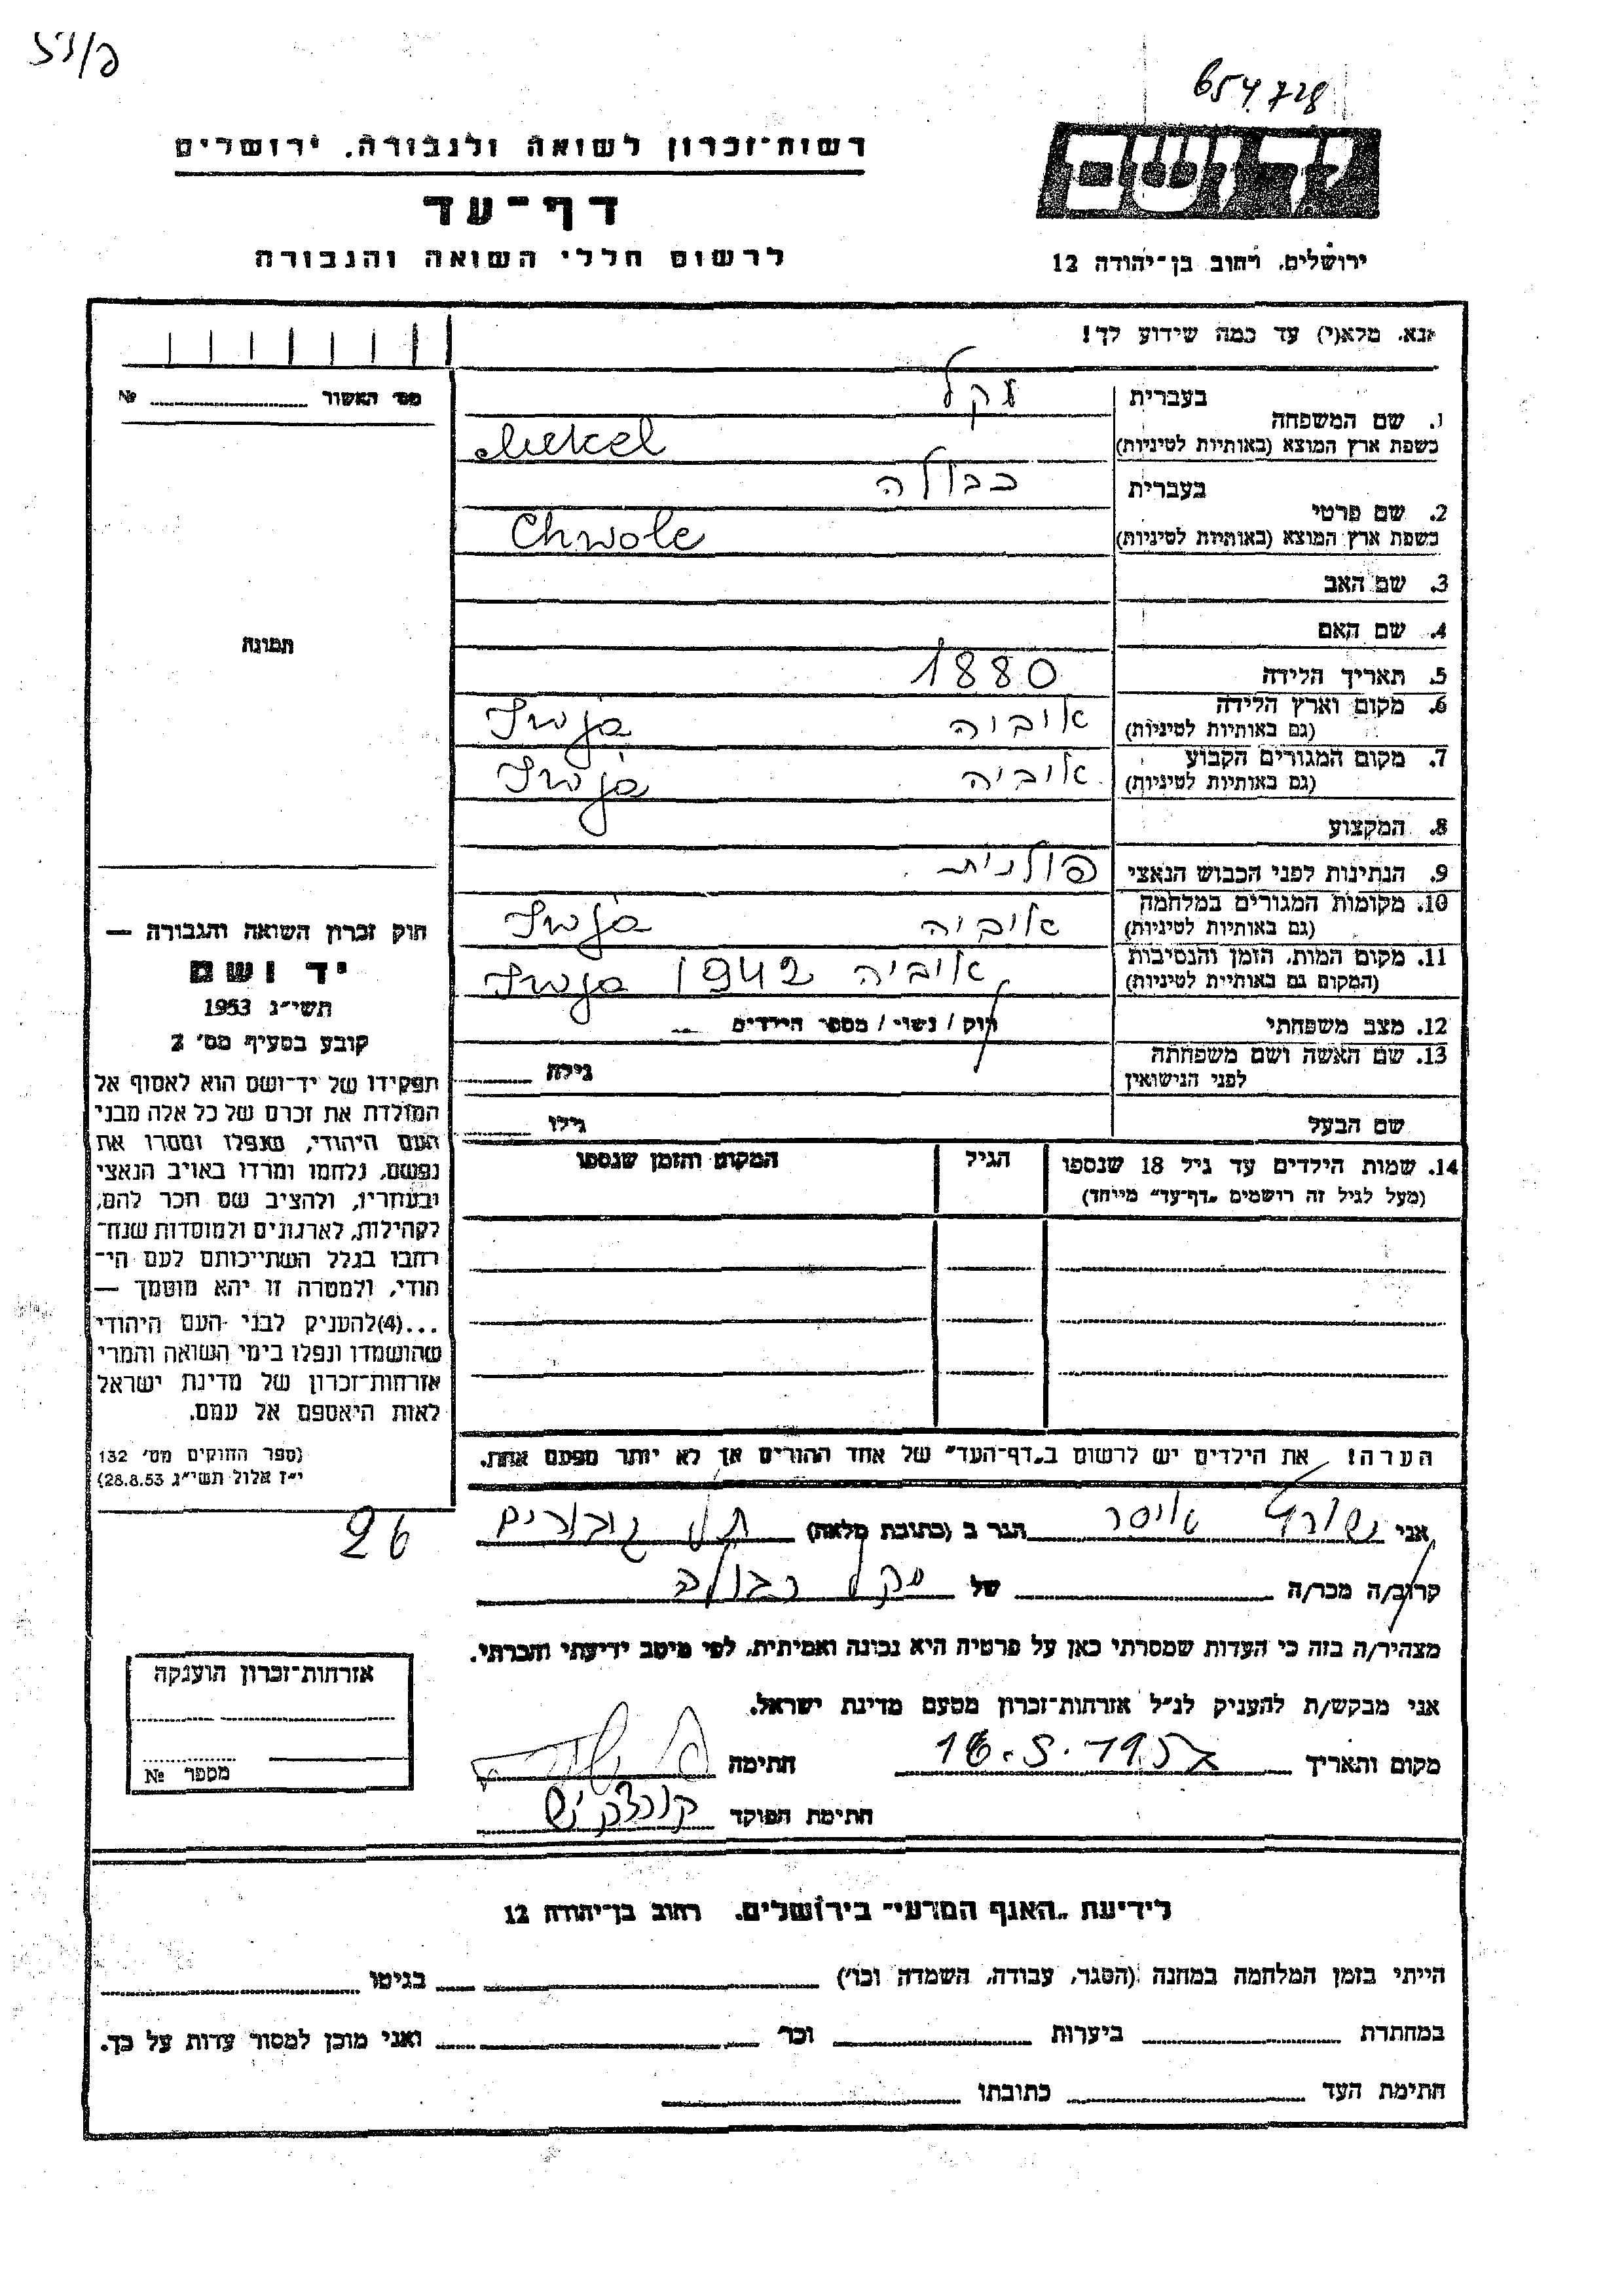 654728
רשות־זכרון לשואה ולגבורה. ירושלים
דף־עד
לרשום חללי השואה והגבורה
יד ושם
ירושלים, רחוב בן־יהודה 12
נא, מלא(י) עד כמה שידוע לך!
מס׳ האשור №
1. שם המשפחה
בעברית
כשפת ארץ המוצא (באותיות לטיניות) Mekel
2. שם פרטי
בעברית
כשפת ארץ המוצא (באותיות לטיניות) Chwole
3. שם האב
4. שם האם
5. תאריך הלידה 1880
6. מקום וארץ הלידה
(גם באותיות לטיניות) איביה Iwja
7. מקום המגורים הקבוע
(גם באותיות לטיניות) איביה Iwja
8. המקצוע
9. הנתינות לפני הכבוש הנאצי פולנית
10. מקומות המגורים במלחמה
(גם באותיות לטיניות) איביה Iwja
11. מקום המות, הזמן והנסיבות
(המקום גם באותיות לטיניות) איביה 1942 Iwja
12. מצב משפחתי רוק / נשוי / מספר הילדים
13. שם האשה ושם משפחתה
לפני הנישואין גילה
שם הבעל גילו
14. שמות הילדים עד גיל 18 שנספו הגיל המקום והזמן שנספו
(מעל לגיל זה רושמים „דף־עד״ מיוחד)
הערה! את הילדים יש לרשום ב„דף־העד״ של אחד ההורים אך לא יותר מפעם אחת.
תמונה
חוק זכרון השואה והגבורה —
יד ושם
תשי״ג 1953
קובע בסעיף מס׳ 2
תפקידו של יד־ושם הוא לאסוף אל
המולדת את זכרם של כל אלה מבני
העם היהודי, שנפלו ומסרו את
נפשם, נלחמו ומרדו באויב הנאצי
ובעוזריו, ולהציב שם וזכר להם,
לקהילות, לארגונים ולמוסדות שנח־
רבו בגלל השתייכותם לעם הי־
הודי, ולמטרה זו יהא מוסמך —
...(4)להעניק לבני העם היהודי
שהושמדו ונפלו בימי השואה והמרי
אזרחות־זכרון של מדינת ישראל
לאות היאספם אל עמם.
(ספר החוקים מס׳ 132
י״ז אלול תשי״ג 28.8.53)
26
אני איסר הגר ב (כתובת מלאה) גבורים
קרוב/ה מכר/ה של
מצהיר/ה בזה כי העדות שמסרתי כאן על פרטיה היא נכונה ואמיתית, לפי מיטב ידיעתי והכרתי.
אני מבקש/ת להעניק לנ״ל אזרחות־זכרון מטעם מדינת ישראל.
מקום ותאריך חתימה
חתימת הפוקד
אזרחות־זכרון הוענקה
מספר №
לידיעת „האגף המדעי״ בירושלים, רחוב בן־יהודה 12
הייתי בזמן המלחמה במחנה (הסגר, עבודה, השמדה וכו׳) בגיטו
במחתרת ביערות וכו׳ ואני מוכן למסור עדות על כך.
חתימת העד כתובתו